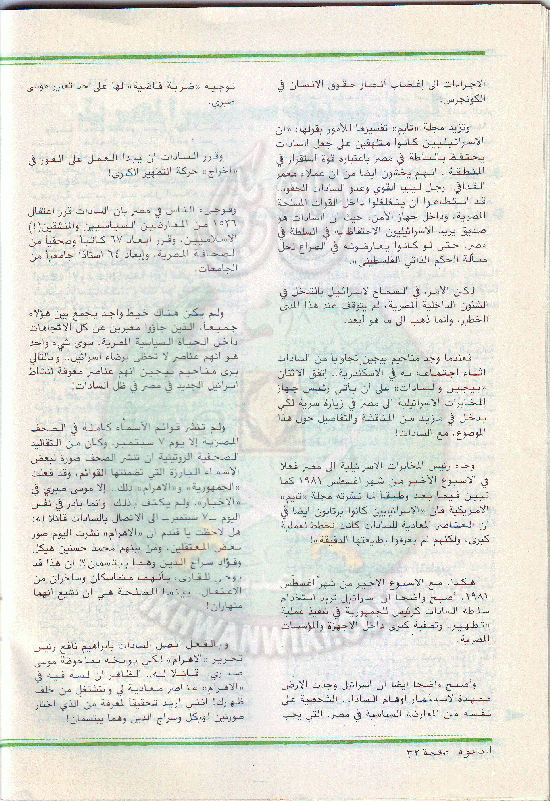 الاجراءات الى إغضاب أنصار حقوق الانسان في
الكونجرس.
وتزيد مجلة «تايم» تفسيرها للأمور بقولها: «ان
الاسرائيليين كانوا متلهفين على جعل السادات
يحتفظ بالسلطة في مصر باعتباره قوة استقرار في
المنطقة . انهم يخشون ايضا من ان عملاء معمر
القذافي رجل ليبيا القوي وعدو السادات الحقود،
قد استطاعوا ان يتغلغلوا داخل القوات المسلحة
المصرية، وداخل جهاز الأمن، حيث ان السادات هو
صديق يريد الاسرائيليون الاحتفاظ به في السلطة في
مصر، حتى لو كانوا يعارضونه في الصراع لحل
مسألة الحكم الذاتي الفلسطيني».
لكن الأمر، في السماح لاسرائيل بالتدخل في
الشئون الداخلية المصرية، لم يتوقف عند هذا المدى
الخطير، وانما ذهب الى ما هو أبعد.
فعندما وجد مناحيم بيجين تجاوبا من السادات
اثناء اجتماعه به في الاسكندرية.. اتفق الاثنان
«بيجين والسادات» على ان يأتي رئيس جهاز
المخابرات الاسرائيلية الى مصر في زيارة سرية لكي
يدخل في مزيد من المناقشة والتفاصيل حول هذا
الموضوع، مع السادات!
وجاء رئيس المخابرات الاسرائيلية الى مصر فعلا
في الاسبوع الأخير من شهر اغسطس ١٩٨١ كما
تبين فيما بعد وطبقا لما نشرته مجلة «تايم»
الامريكية فان «الاسرائيليين كانوا يرتابون ايضا في
ان العناصر المعادية للسادات كانت تخطط لعملية
كبرى، ولكنهم لم يعرفوا طبيعتها الدقيقة»!
هكذا، مع الاسبوع الاخير من شهر اغسطس
١٩٨١، أصبح واضحا ان اسرائيل تريد استخدام
سلطة السادات كرئيس للجمهورية في تنفيذ عملية
«تطهير» وتصفية كبرى داخل الاجهزة والمؤسسات
المصرية.
وأصبح واضحا ايضا ان اسرائيل وجدت الارض
ممهدة لاستثمار أوهام السادات الشخصية على
نفسه من المعارضة السياسية في مصر، التي يجب
توجيه «ضربة قاضية» لها على حد تعبير موسى
صبري.
وقرر السادات ان يبدأ العمل على الفور في
«اخراج» حركة التطهير الكبرى!
وفوجىء الناس في مصر بان السادات قرر اعتقال
١٥٣٦ من المعارضين السياسيين والمنشقين(!)
الاسلاميين، وقرر ابعاد ٦٧ كاتباً وصحفياً من
الصحافة المصرية، وإبعاد ٦٤ استاذاً جامعياً من
الجامعات.
ولم يكن هناك خيط واحد يجمع بين هؤلاء
جميعاً، الذين جاؤوا معبرين عن كل الاتجاهات
داخل الحياة السياسية المصرية. سوى شيء واحد
هو انهم عناصر لا تحظى برضاء اسرائيل.. وبالتالي
يرى مناحيم بيجين انهم عناصر معوقة لنشاط
اسرائيل الجديد في مصر في ظل السادات.
ولم تنشر قوائم الأسماء كاملة في الصحف
المصرية إلا يوم ٧ سبتمبر. وكان من التقاليد
الصحفية الروتينية ان تنشر الصحف صورة لبعض
الأسماء البارزة التي تضمنتها القوائم، وقد فعلت
«الجمهورية» و«الاهرام» ذلك.. إلا موسى صبري في
«الأخبار». ولم يكتف بذلك، وانما بادر في نفس
اليوم ـ ٧ سبتمبر ـ الى الاتصال بالسادات قائلا له:
هل لاحظت يا فندم ان «الاهرام» نشرت اليوم صور
بعض المعتقلين، ومن بينهم محمد حسنين هيكل
وفؤاد سراج الدين وهما يبتسمان؟! ان هذا قد
يوحي للقارىء بانهما متماسكان وساخران من
الاعتقال، بينما المصلحة هي ان نشيع انهما
منهاران!
وبالفعل اتصل السادات بابراهيم نافع رئيس
تحرير «الاهرام» لكي يوبخه بملحوظة موسى
صبري قائلا له: الظاهر ان لسه فيه في
«الاهرام» عناصر معادية لي وبتشتغل من خلف
ظهرك! انني اريد تحقيقاً لمعرفة من الذي اختار
صورتين لهيكل وسراج الدين وهما يبتسمان!
الدعوة صفحة ٣٢